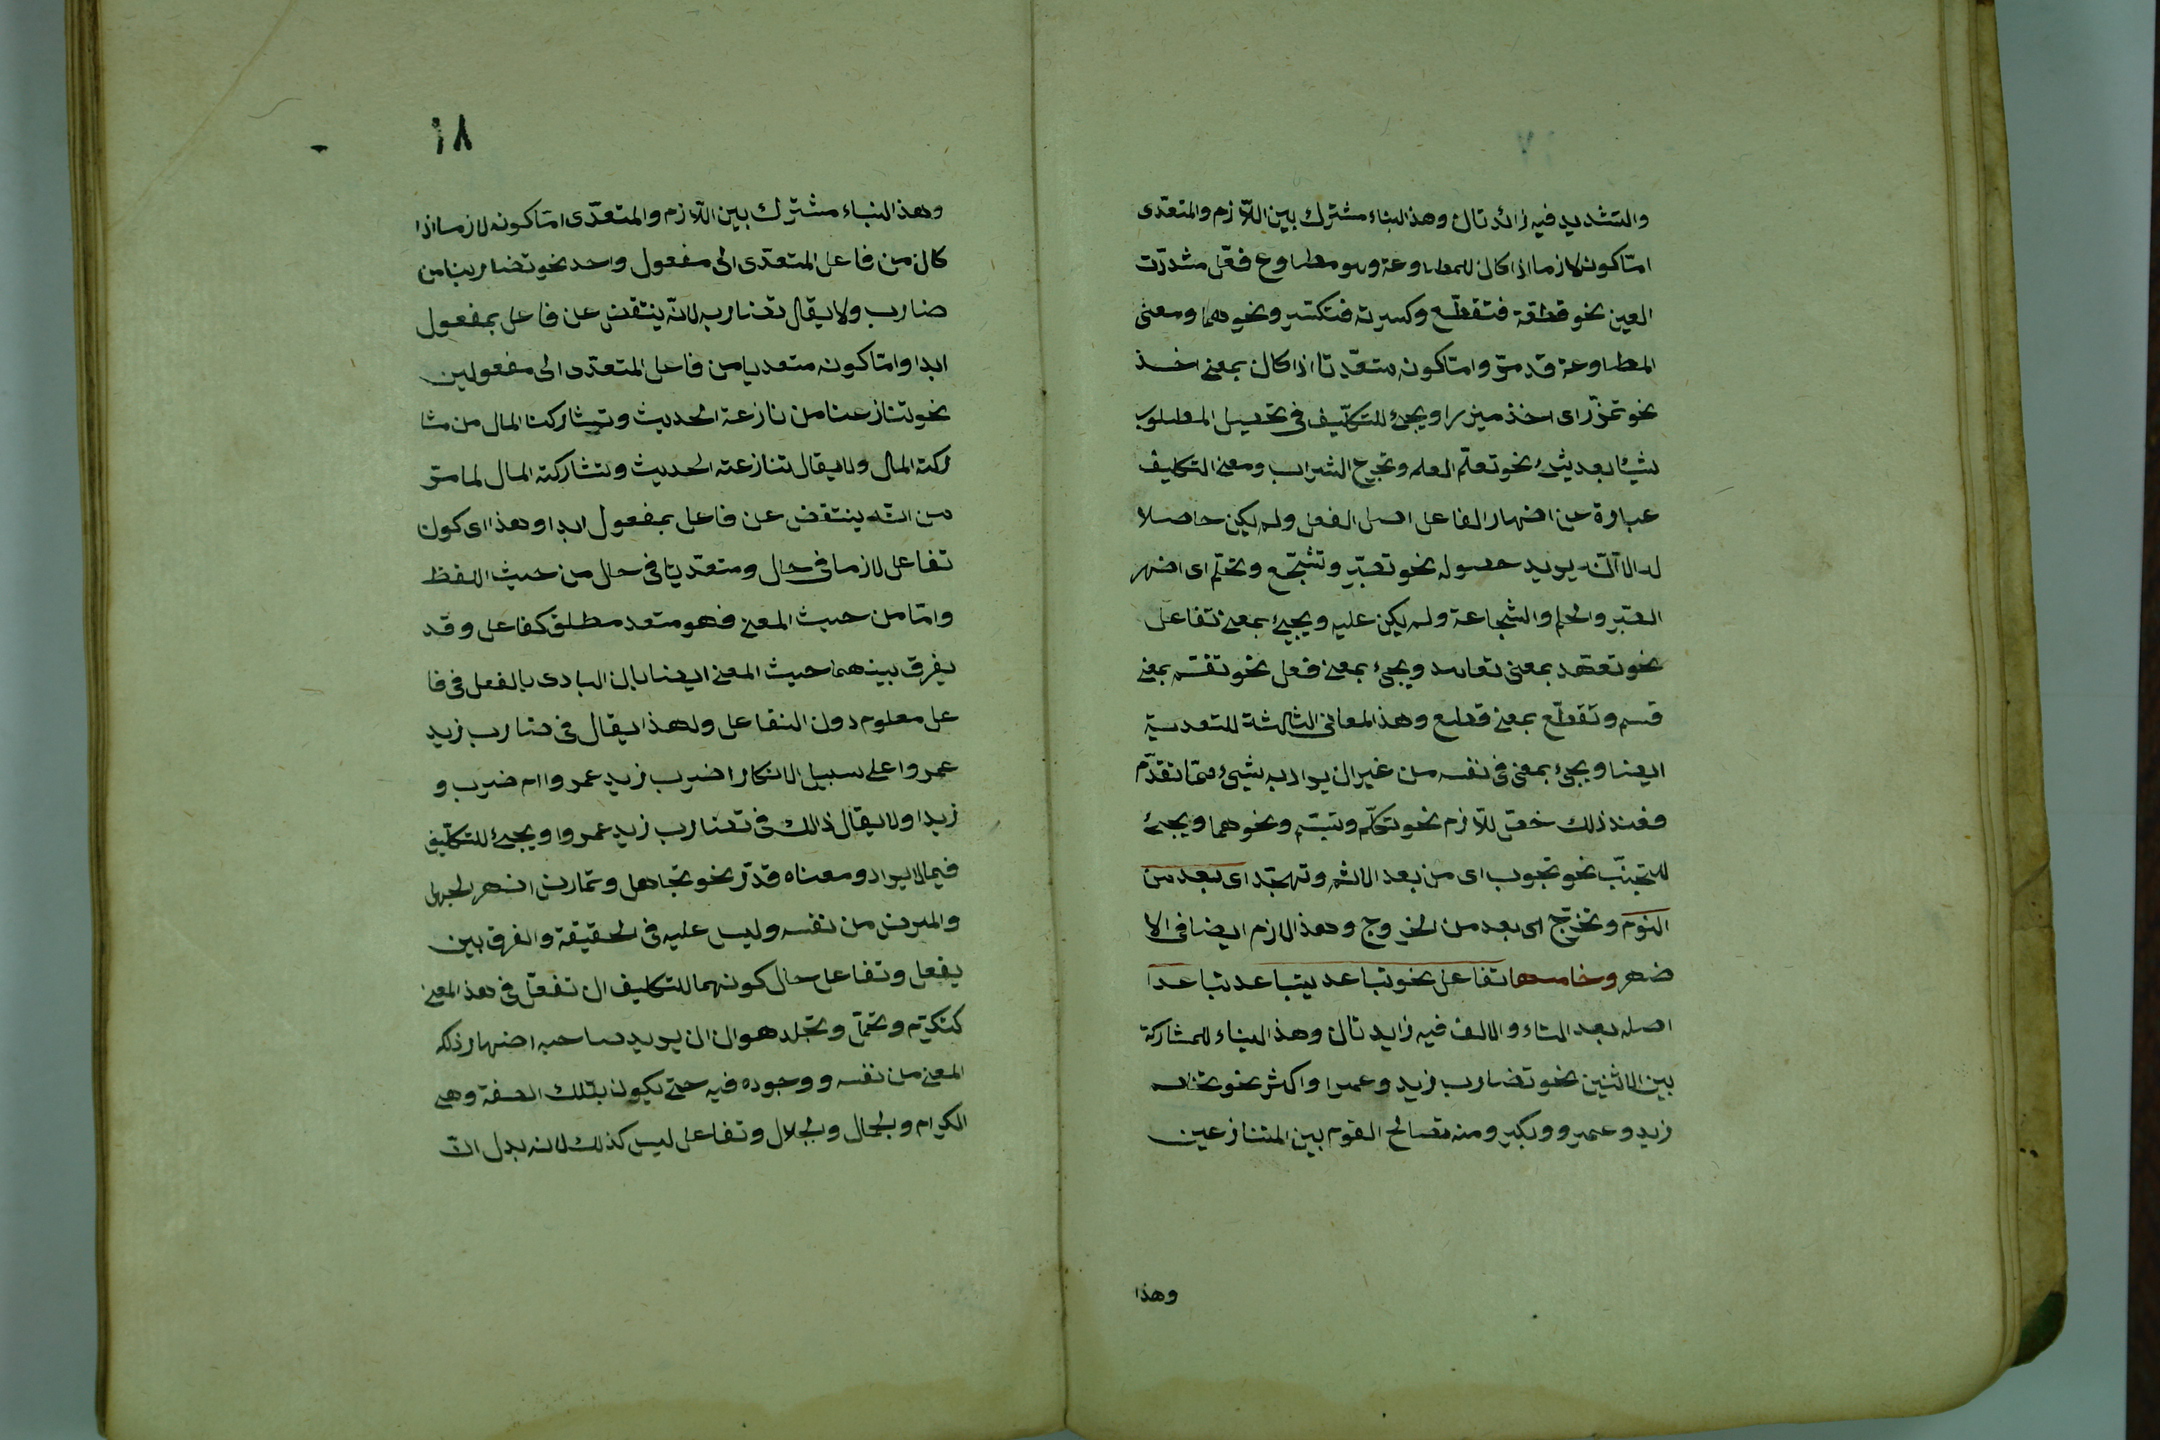 والتشديد فيه زائدتان وهذا البناء مشترك بين اللازم والمتعدّى
امّا كونه لازما اذا كان للمطاوعة وهو مطاوع فعّل مشددّت
العين نحو قطعّته فتقطّع وكسرته فتكسّر ونحوهما ومعنى
المطاوعة قد مرّ وامّا كونه متعدّيا اذا كان بمعنى اخذ
نحو تمزّر اى اخذ ميزرا ويجئ للتكلّيف فى تحصيل المطلوب
شيئا بعد شئ نحو تعلّم العلم وتجرع الشراب ومعنى التكليف
عبارة عن اضهار الفاعل اصل الفعل ولم يكن حاصلا
له الا انّه يريد حصوله نحو تصبّر وتشجّع وتحلّم اى اضهر
الصّبر والحلم والشجاعة ولم يكن عليه ويجيئ بمعنى تفاعل
نحو تعهّد بمعنى تعاهد ويجئ بمعنى فعل نحو تقسّم بمعنى
قسم وتقطّع بمعنى قطع وهذا المعانى الثالثة للتعدية
ايضا ويجئ بمعنى فى نفسه من غير ان يراد به شيئ ممّا تقدّم
فعند ذلك خصّ للّازم نحو تكلّم وتبسّم ونحوهما ويجئ
للتجنّب نحو تجوب اى من بعد الاثم وتهجّد اى بعد من
النوم وتخرّج اى بعد من الخروج وهذا لازم ايضا فى الا
ضهر وخامسها تفاعل نحو تباعد يتباعد تباعدا
اصله بعد التاء والالف فيه زايدتان وهذا البناء للمشاركة
بين الاثنين نحو تضارب زيد وعمرا واكثر نحو تخاصم
زيد وعمرو وبكر ومنه تصالح القوم بين المتنازعين
وهذا
١٨
وهذا البناء مشترك بين اللّازم والمتعدّى امّا كونه لازما اذا
كان من فاعل المتعدّى الى مفعول واحد نحو تضاربنا من
ضارب ولا يقال تضاربه لانّه ينتقض عن فاعل بمفعول
ابدا وامّا كونه متعديا من فاعل المتعدّى الى مفعولين
نحو تنازعنا من نازعة الحديث وتشاركنا المال من شا
ركته المال ولا يقال تنازعته الحديث وتشاركته المال لما مرّ
من انّه ينتقض عن فاعل بمفعول ابدا وهذا اى كون
تفاعل لازما فى حال ومتعدّيا فى حال من حيث اللفظ
وامّا من حيث المعنى فهو متعد مطلق كفاعل وقد
يفرق بينهما حيث المعنى ايضا بان البادى بالفعل فى فا
عل معلوم دون التفاعل ولهذا يقال فى ضارب زيد
عمروا على سبيل الانكار اضرب زيد عمروا ام ضرب و
زيدا ولا يقال ذالك فى تضارب زيد عمروا ويجئ للتكلّيف
فيما لا يراد ومعناه قد مرّ نحو تجاهل وتمارض اضهر الجهل
والمرض من نفسه وليس عليه فى الحقيقة والفرق بين
يفعل وتفاعل حال كونهما للتكليف ان تفعّل فى هذا المعنى
كتكرّم وتجمّل وتجلد هو ان ان يريد صاحبه اضهار ذلك
المعنى من نفسه ووجوده فيه حتى يكون بتلك الصفة وهى
الكرام والجمال والجلال وتفاعل ليس كذلك لانه بدل انّ